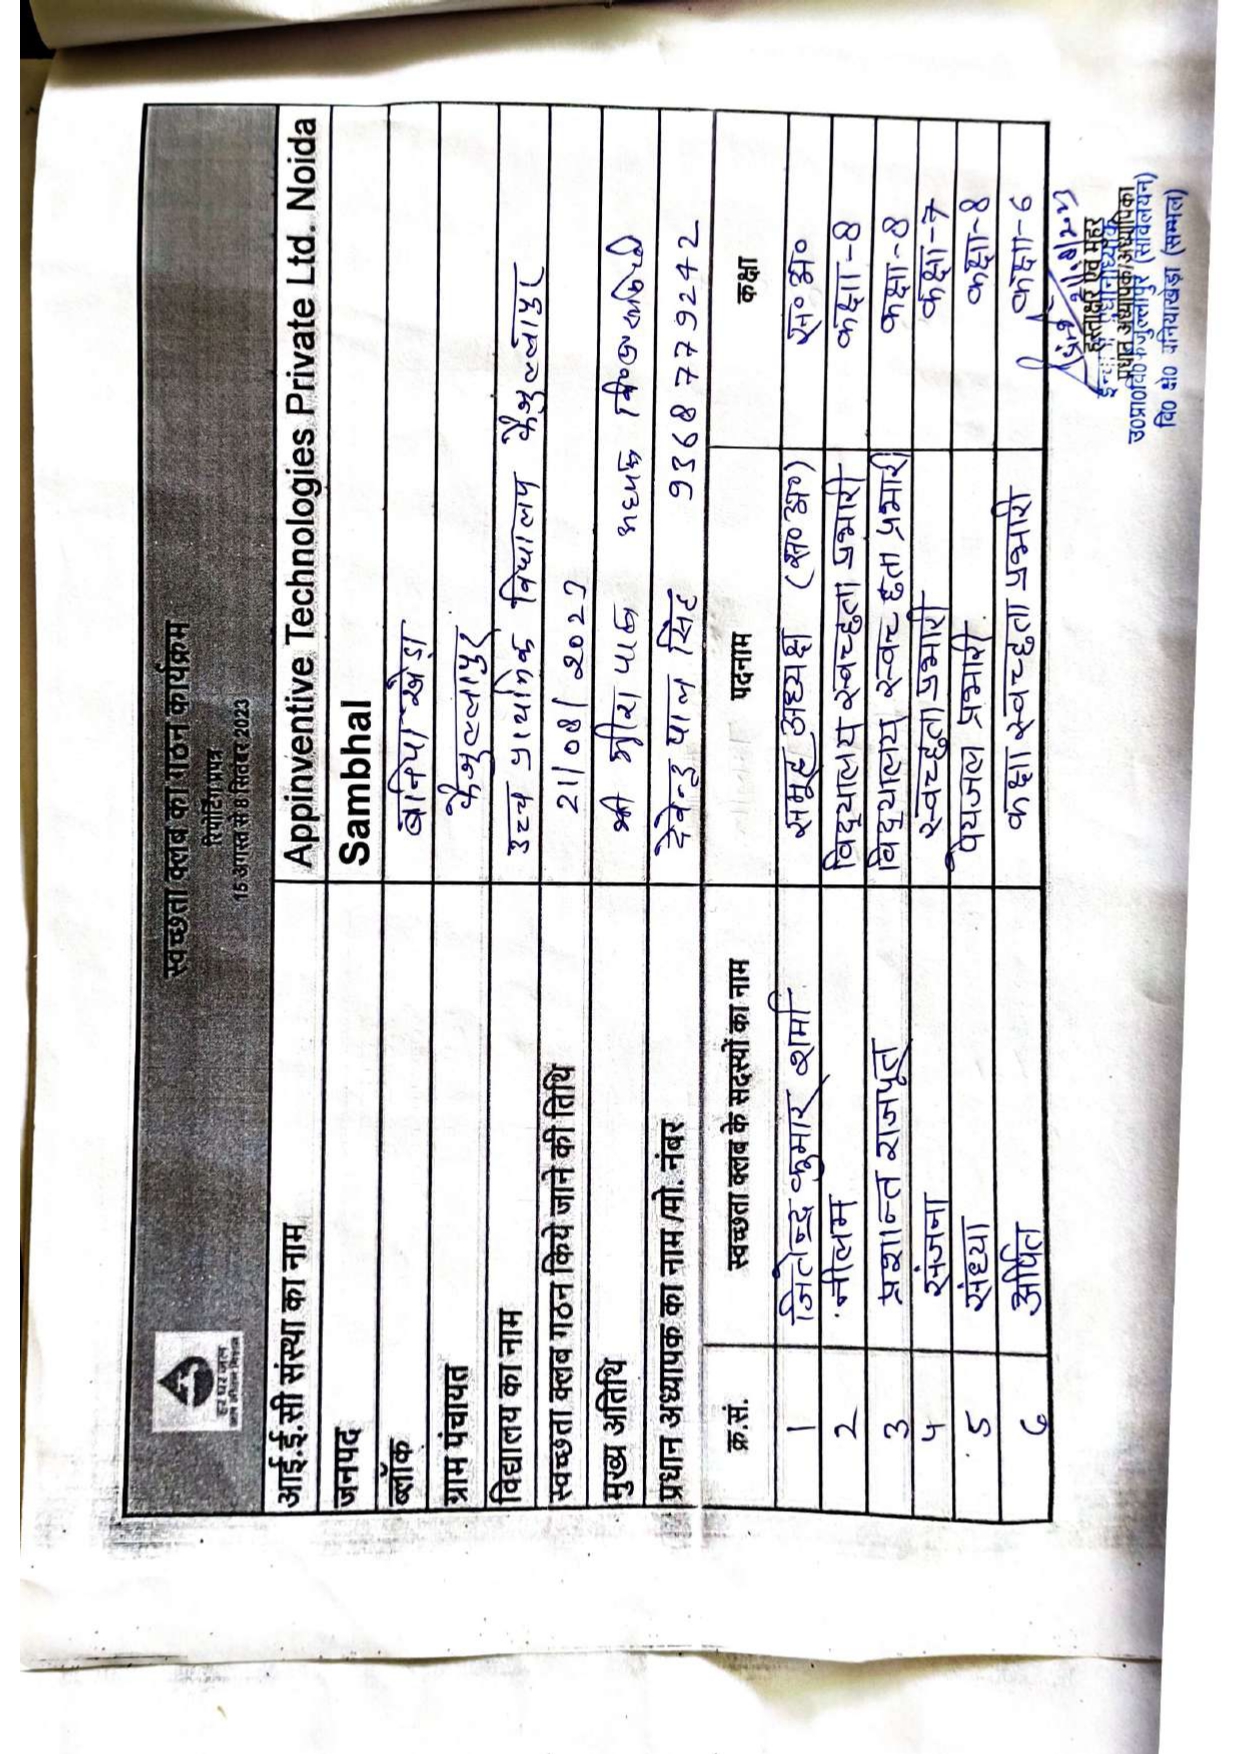 स्वच्छता क्लब का गठन कार्यक्रम
रिपोर्टिंग प्रपत्र
15 अगस्त से 8 सितंबर 2023
हर घर जल
जल जीवन मिशन
आई.ई.सी संस्था का नाम Appinventive Technologies Private Ltd. Noida
जनपद Sambhal
ब्लॉक बनिया खेड़ा
ग्राम पंचायत फैजुल्लापुर
विद्यालय का नाम उच्च प्राथमिक विद्यालय फैजुल्लापुर
स्वच्छता क्लब गठन किये जाने की तिथि 21/08/2023
मुख्य अतिथि श्री
प्रधान अध्यापक का नाम/मो. नंबर देवेन्द्र पाल सिंह 9368779242
क्र.सं. स्वच्छता क्लब के सदस्यों का नाम पदनाम कक्षा
1 जितेन्द्र कुमार शर्मा समूह अध्यक्ष (स०अ०) स०अ०
2 नीलम विद्यालय स्वच्छता प्रभारी कक्षा-8
3 प्रशान्त राजपूत विद्यालय स्वच्छता प्रभारी कक्षा-8
4 संजना स्वच्छता प्रभारी कक्षा-7
5 संध्या पेयजल प्रभारी कक्षा-8
6 अर्पित कक्षा स्वच्छता प्रभारी कक्षा-6
हस्ताक्षर एवं मोहर
प्रधान अध्यापक/अध्यापिका
उ०प्रा०वि० फैजुल्लापुर (संविलयन)
वि० क्षे० बनियाखेड़ा (सम्भल)